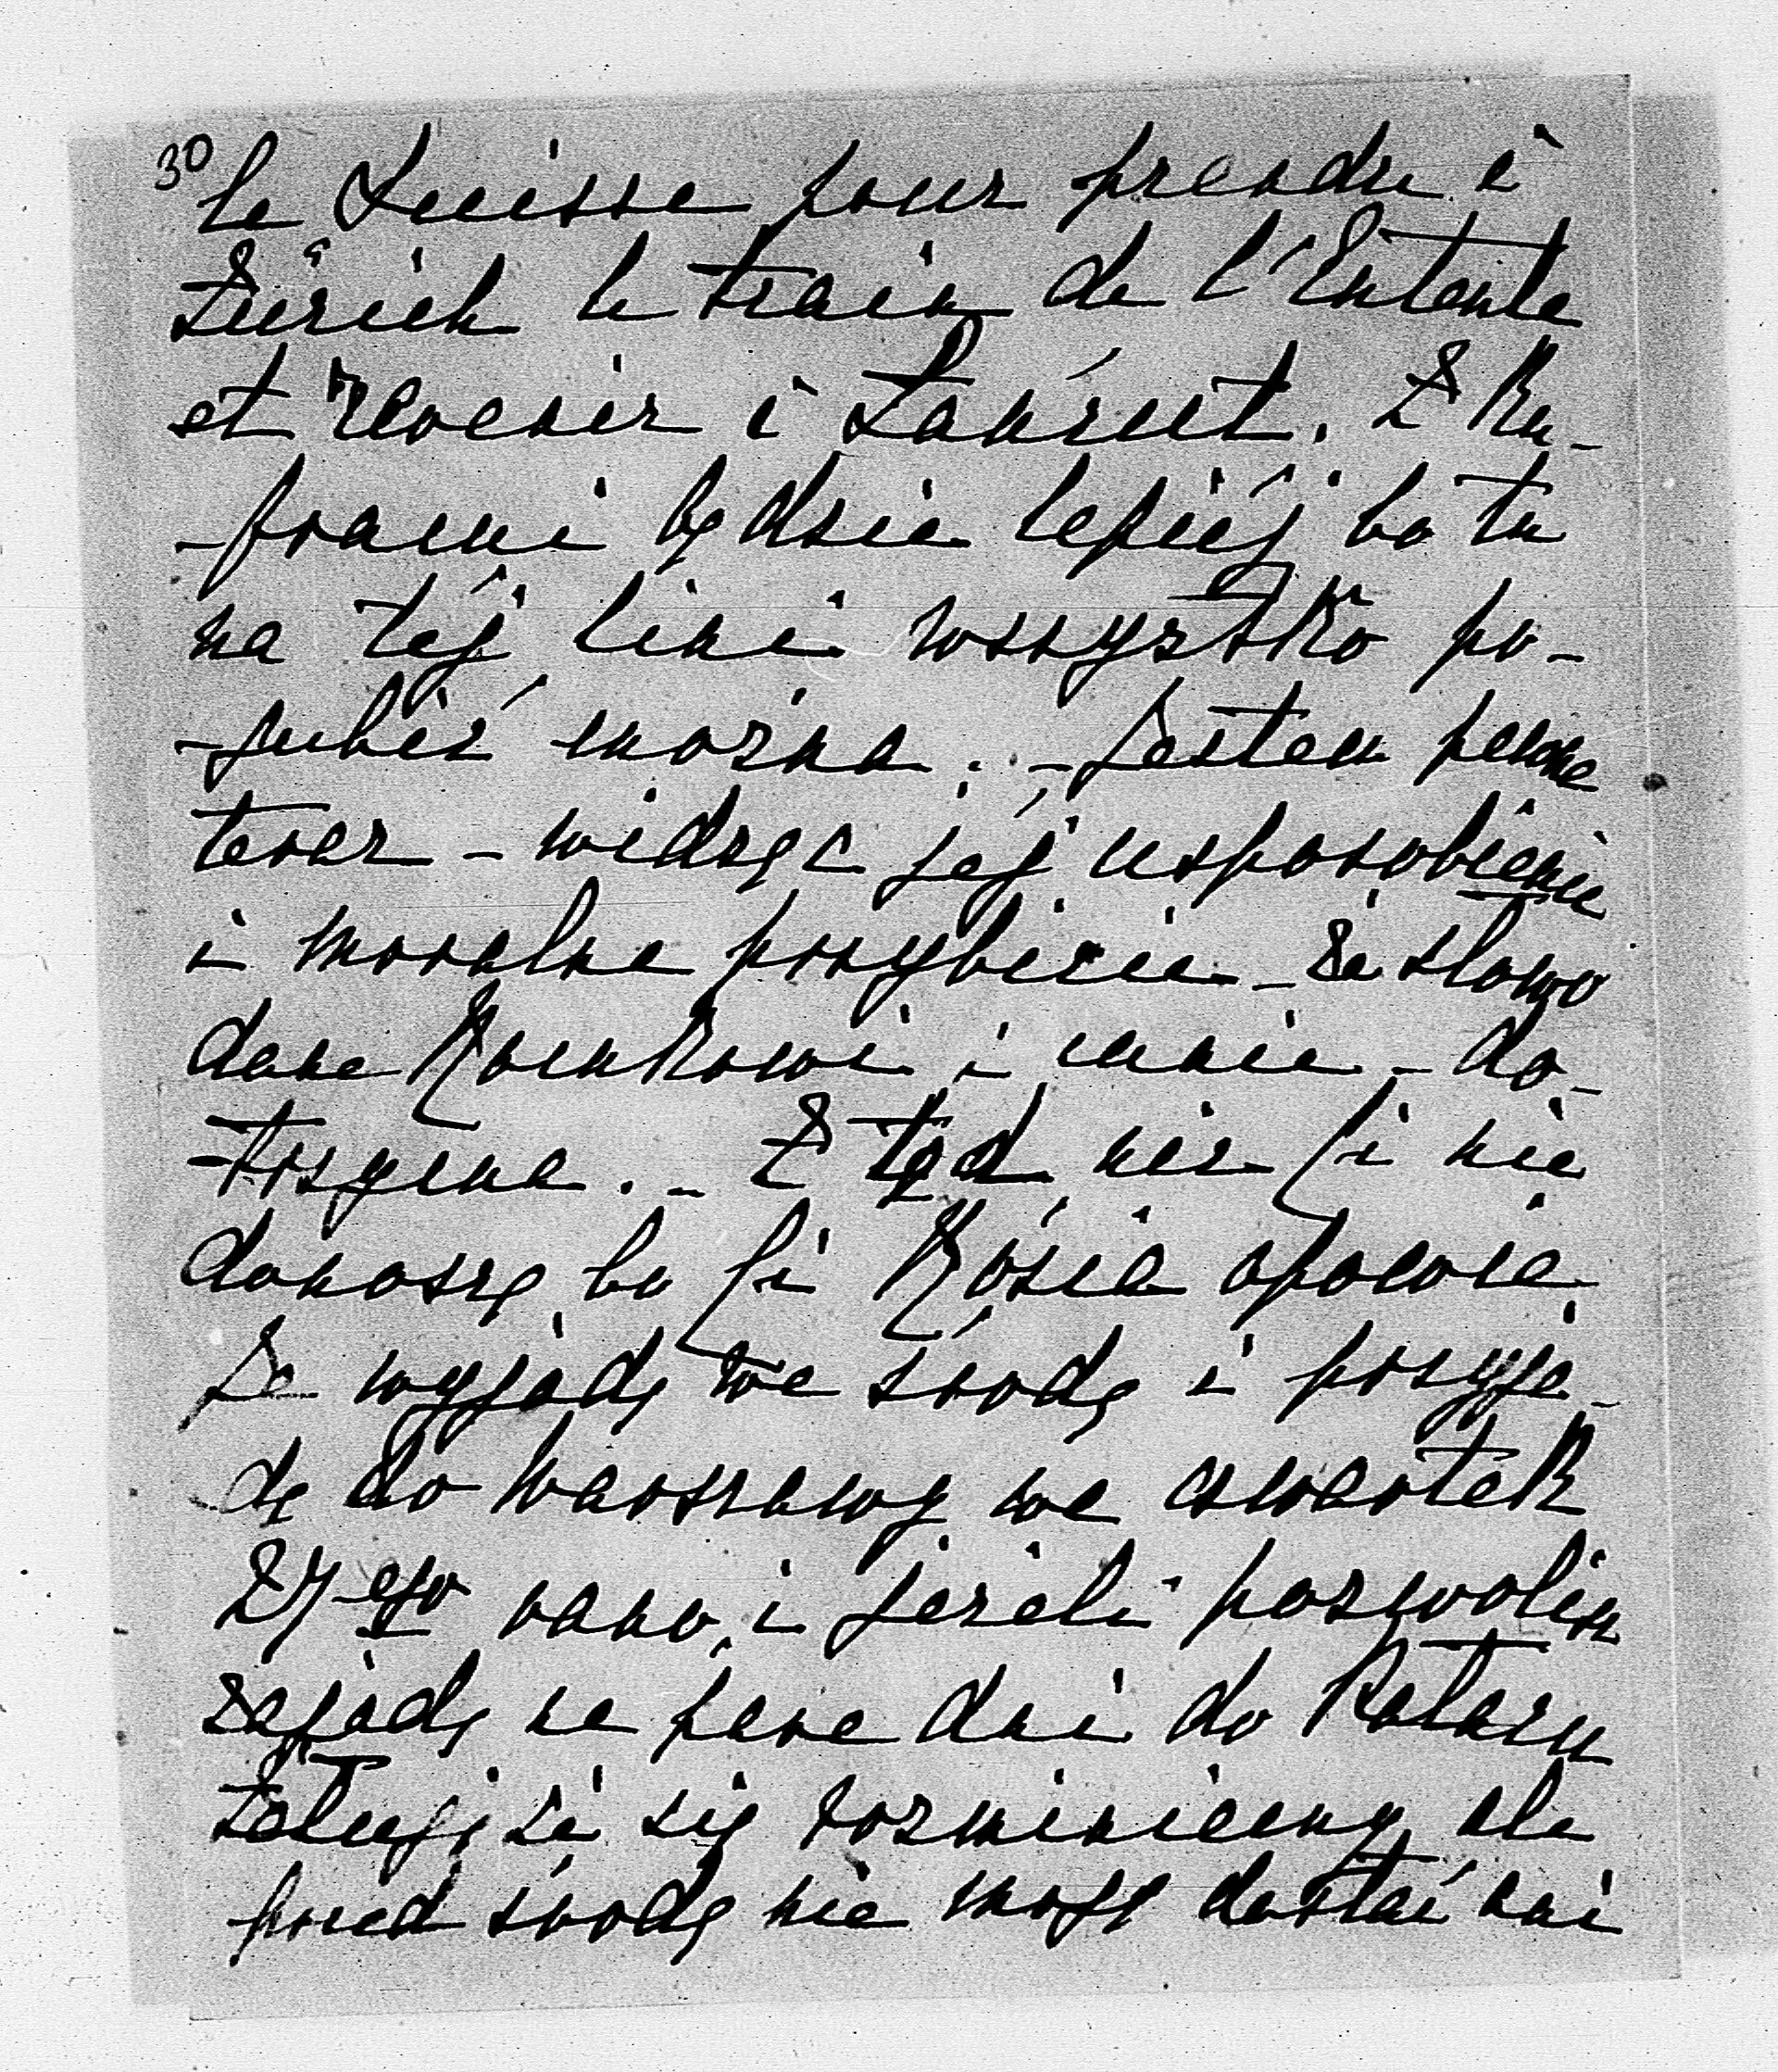 30
la Suisse pour prendre à
Zürich le train de l'Entente
et revenir à Łańcut. Z Ku-
-frami będzie lepiéj bo tu
na téj lini wszystko po-
-gubić można. - Jestem pewna
teraz - widząc jéj usposobienie
i moralne przybicie - że słowo
dane Romkowi i mnie - do-
-trzyma. - Z tąd nic Ci nie
donoszę bo Ci Rózia opowie
Ja wyjadę we środę i przyja-
dę do Warszawy we czwartek
27-ego rano i jeżeli pozwolisz
zajadę na parę dni do
Żałuję że się rozminiemy ale
przed środą nie mogę dostać ani